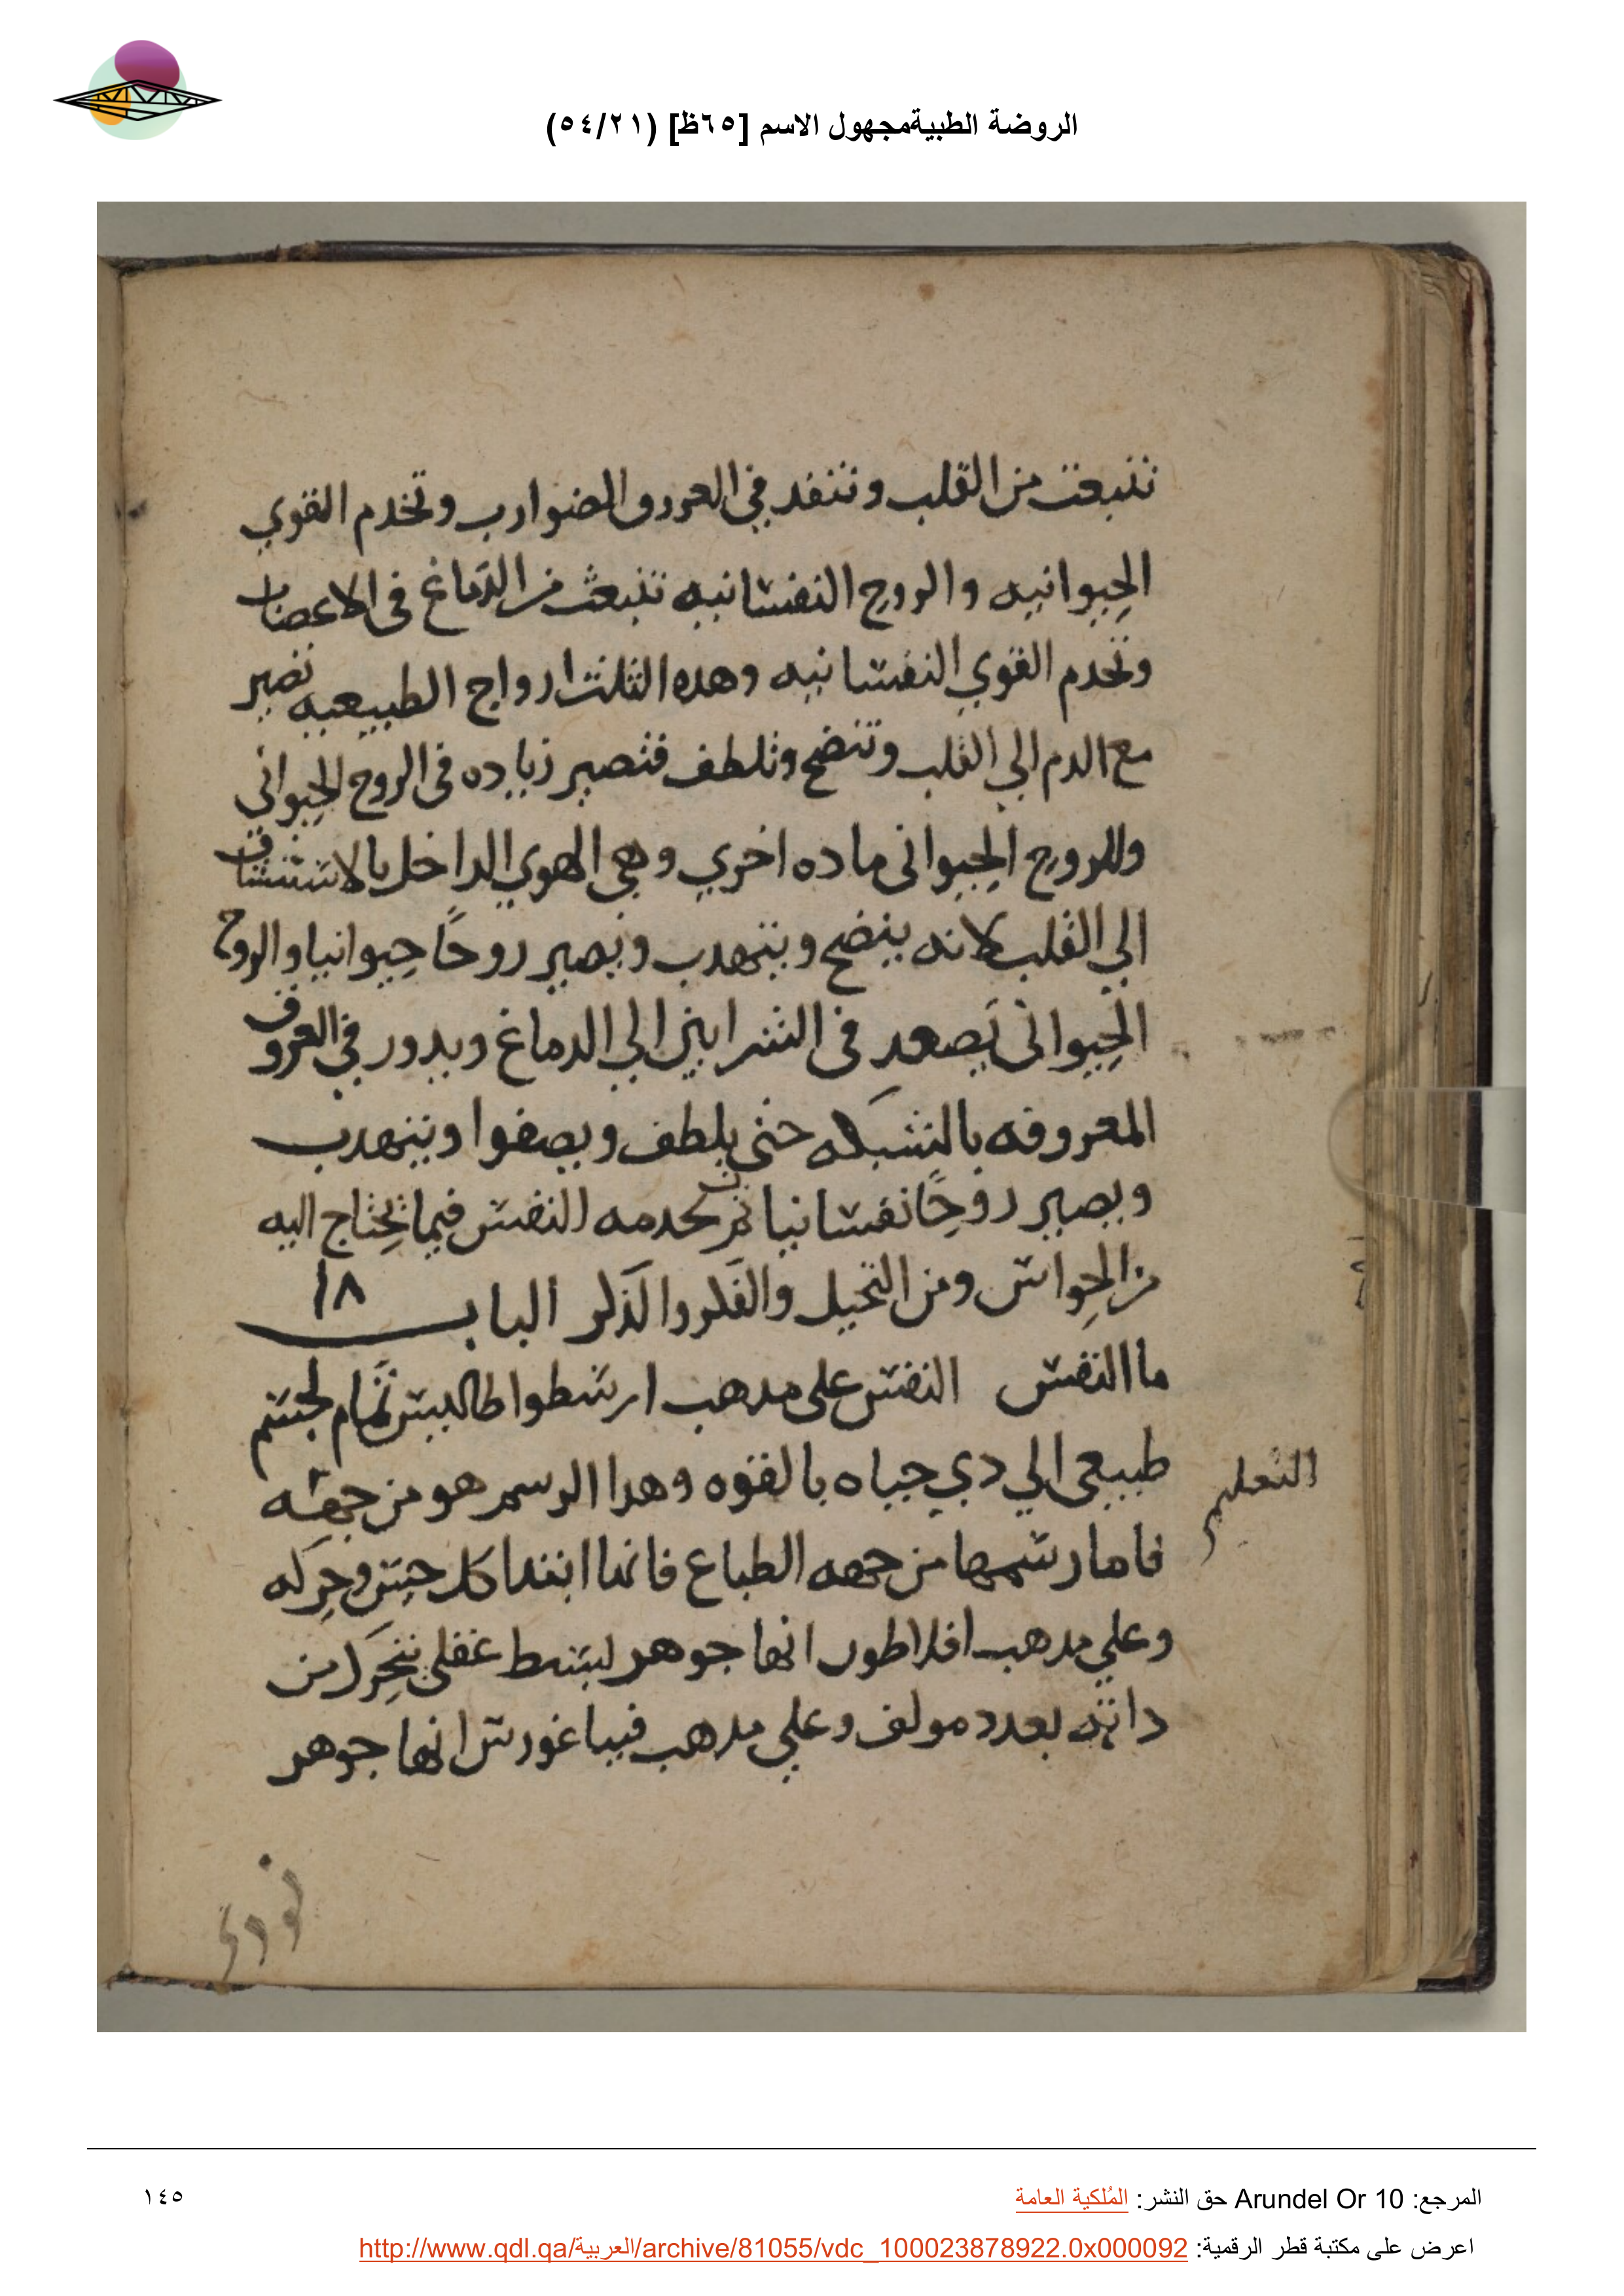 الروضة الطبيةمجهول الاسم [٦٥ظ] (٥٤/٢١)
تنبعت من القلب وتنفد في العروق الضوارب وتخدم القوي
الحيوانيه والروح النفسانيه تنبعث من الدماغ في الاعصاب
وتخدم القوي النفسانيه وهده الثلث ارواح الطبيعيه تصير
مع الدم الي القلب وتنضج وتلطف فتصير زياده في الروح الحيواني
وللروح الحيواني ماده اخري وهي الهوي الداخل بالاستنشاق
الي القلب لانه ينضج ويتهدب ويصير روحًا حيوانيا والروح
الحيواني يصعد في الشرايين الي الدماغ ويدور في العروق
المعروفه بالشبكه حتي يلطف ويصفوا ويتهدب
ويصير روحًا نفسانيا ثم تخدمه النفس فيما تحتاج اليه
من الحواس ومن التخيل والفكر والذكر الباب ١٨
ما النفس النفس علي مدهب ارسطوا طاليس تمام لجسم
طبيعي الي دي حياه بالقوه وهدا الرسم هو من جهة
التعليم
فاما رسمها من جهه الطباع فانها ابتدا كل حس وحركه
وعلي مدهب افلاطون انها جوهر بسيط عقلي يتحرك من
داته بعدد مولف وعلي مدهب فيباغورس انها جوهر
المرجع: Arundel Or 10 حق النشر: المُلكية العامة
١٤٥
اعرض على مكتبة قطر الرقمية: http://www.qdl.qa/العربية/archive/81055/vdc_100023878922.0x000092